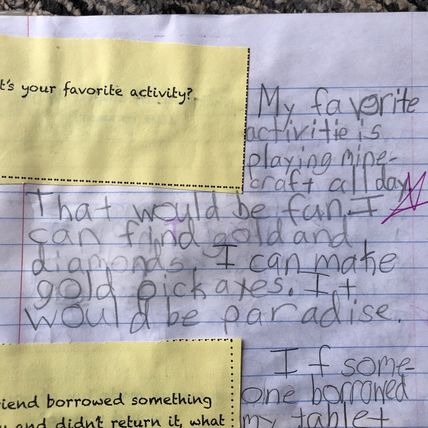 t's your favorite activity?
My favorite
activitie is
playing mine-
craft all day.
That would be fun. I
can find gold and
diamonds. I can make
gold pickaxes. It
would be paradise.
riend borrowed something
u and didn't return it, what
If some-
one borrowed
my tablet